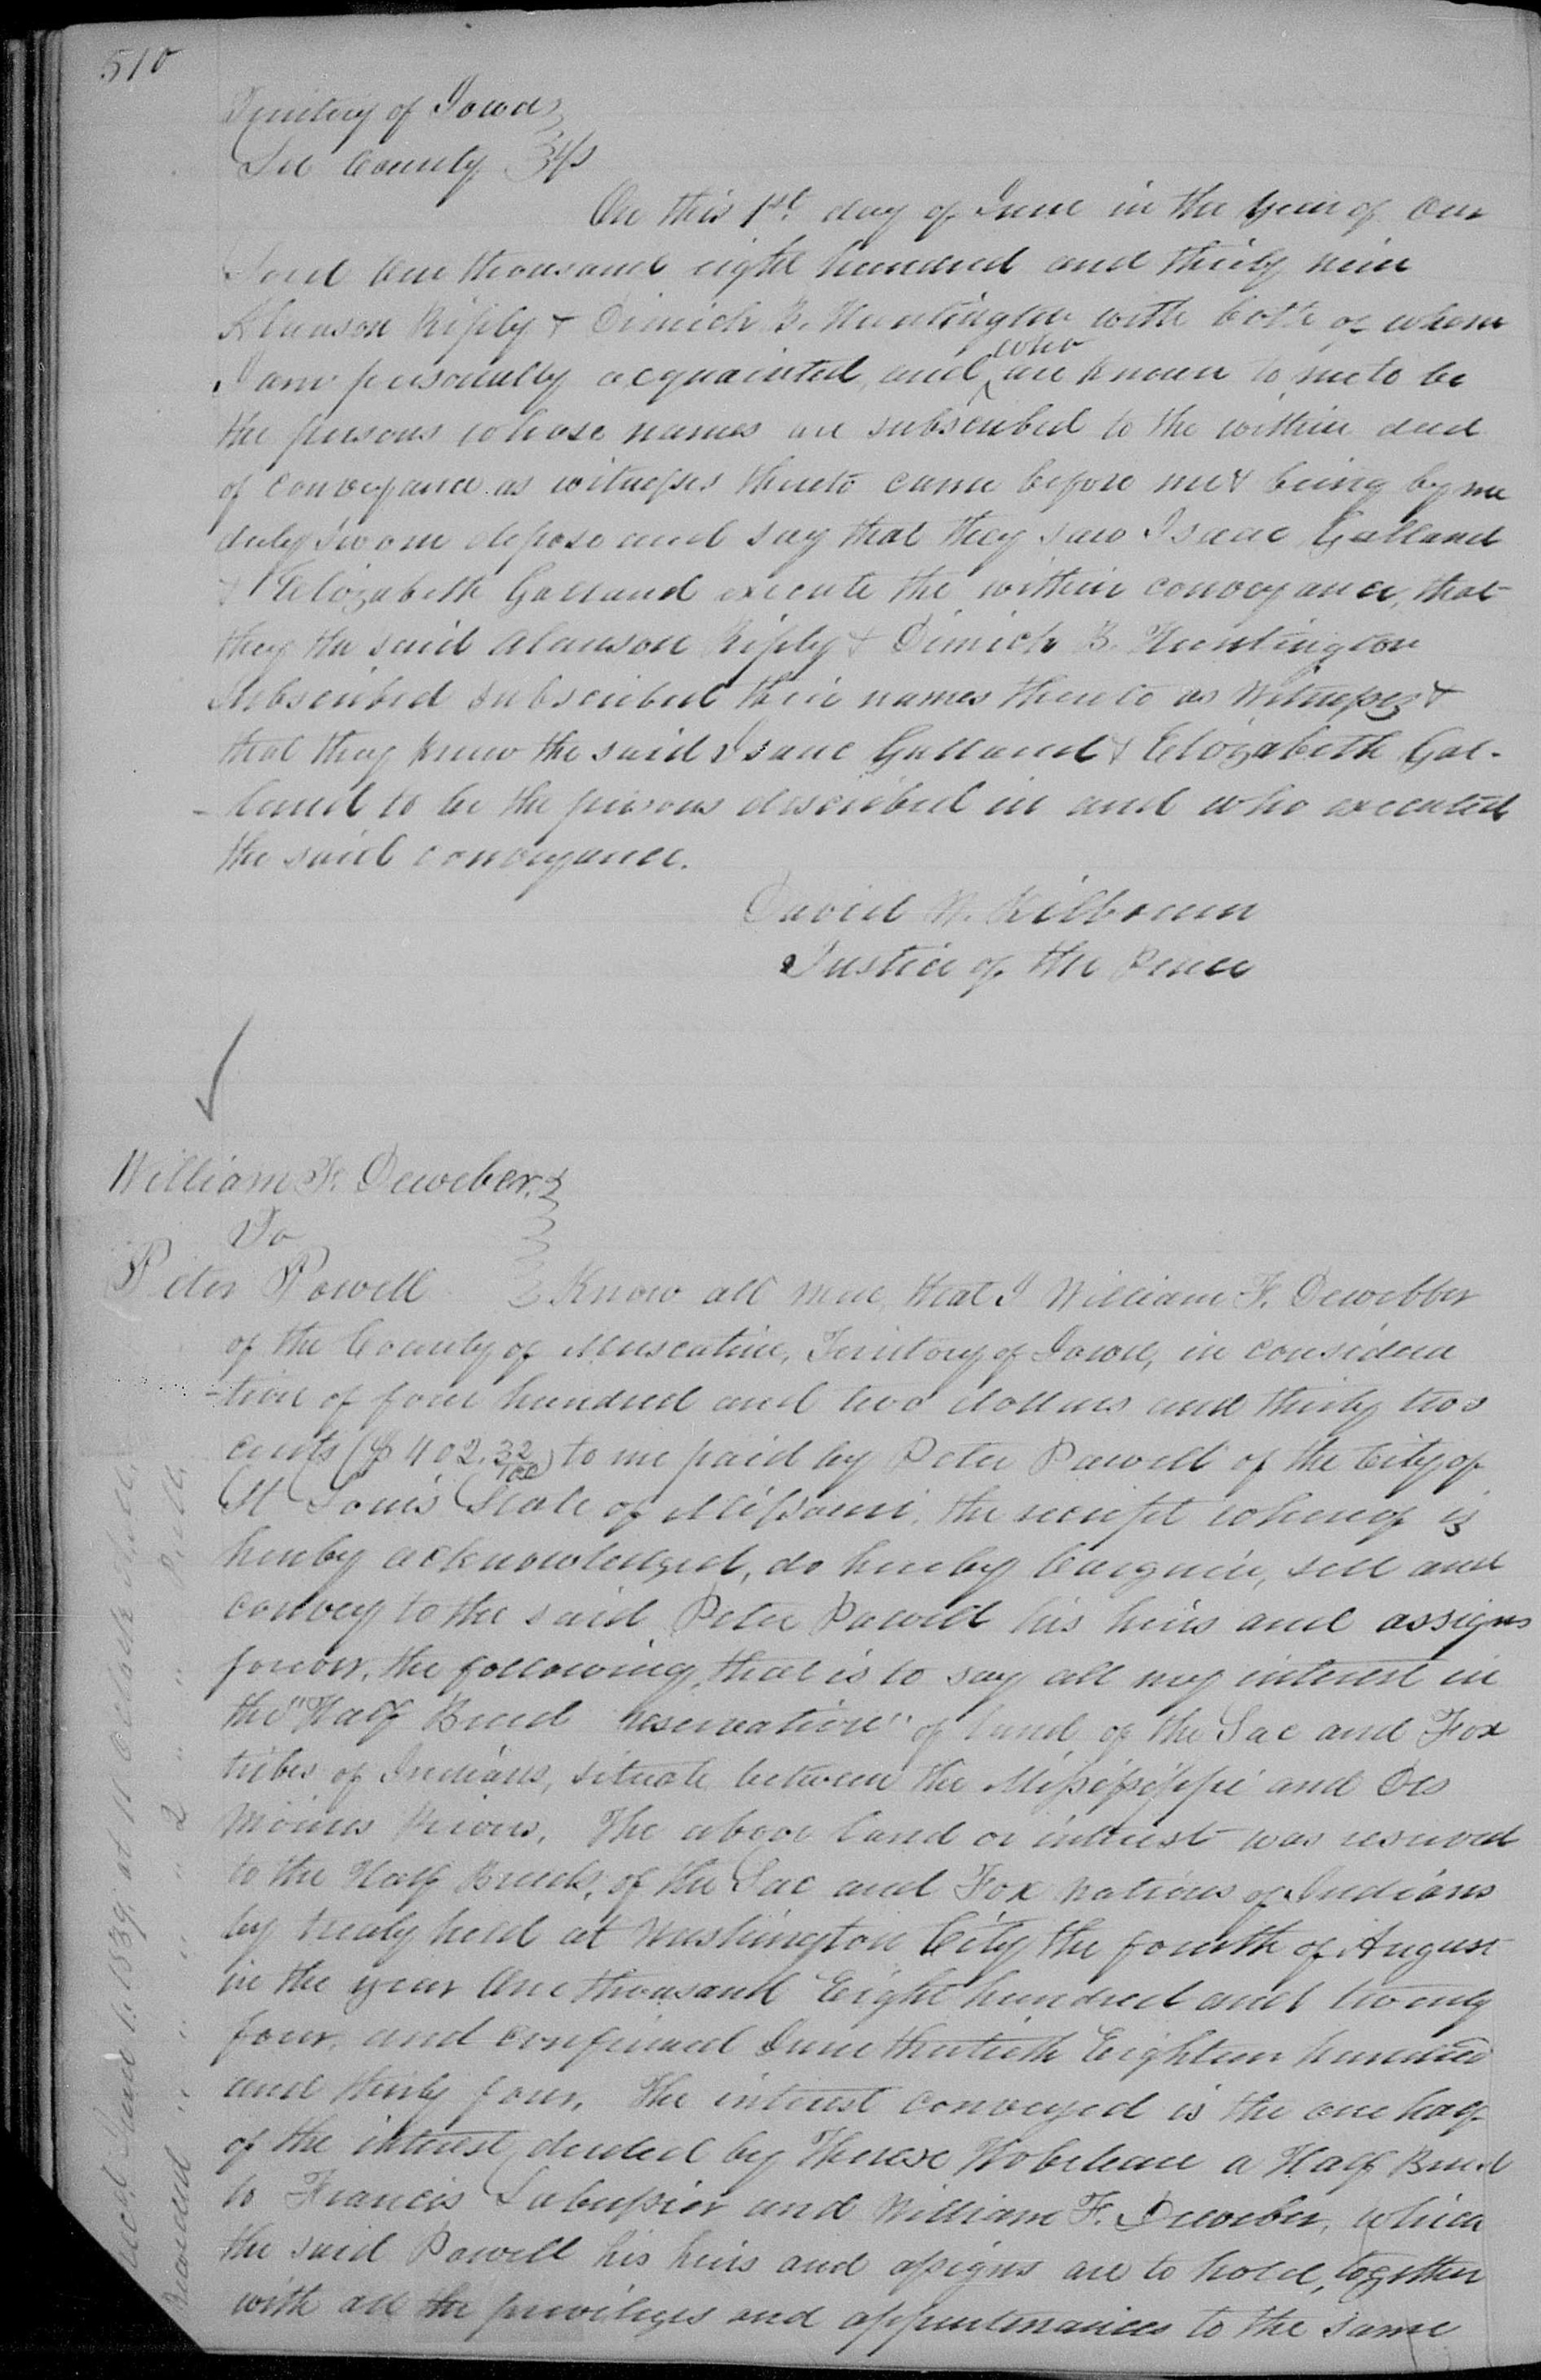 510
Territory of Iowa }
Lee County } s/s
On this 1st day of June in the year of our
Lord One thousand eight hundred and thirty nine
Alanson Ripley & Dimick B. Huntington with both of whom
I am personally acquainted, and who are known to me to be
the persons whose names are subscribed to the within deed
of conveyance as witnesses thereto came before me & being by me
duly sworn depose and say that they saw Isaac Galland
& Elizabeth Galland execute the within conveyance, that
they the said Alanson Ripley & Dimick B. Huntington
subscribed subscribed their names thereto as Witnesses &
that they knew the said Isaac Galland & Elizabeth Gal-
-land to be the persons described in and who executed
the said conveyance.
David W. Kilbourn
Justice of the Peace
William F. Deweber. }
To }
Peter Powell } Know all men, that I William F. Dewebber
of the County of Muscatine, Territory of Iowa, in considera
-tion of four hundred and two dollars and thirty two
cents ($402.32/100) to me paid by Peter Powell of the City of
St Louis State of Missouri, the receipt whereof is
hereby acknowledged, do hereby bargain, sell and
convey to the said Peter Powell his heirs and assigns
forever, the following, that is to say all my interest in
the "Half Breed reservation" of land of the Sac and Fox
tribes of Indians, situate between the Mississippi and Des
Moines Rivers. The above land or interest was reserved
to the Half Breeds, of the Sac and Fox nations of Indians
by treaty held at Washington City the fourth of August
in the year One thousand Eight hundred and twenty
four, and confirmed June thirtieth Eighteen hundred
and thirty four. The interest conveyed is the one half
of the interest deeded by Therese a Half Breed
to Francis Labussier and William F. Deweber, which
the said Powell his heirs and assigns are to hold, together
with all the privileges and appurtenances to the same
Recd June 1. 1839, at 11 oclock
Recorded " " " 2 " "